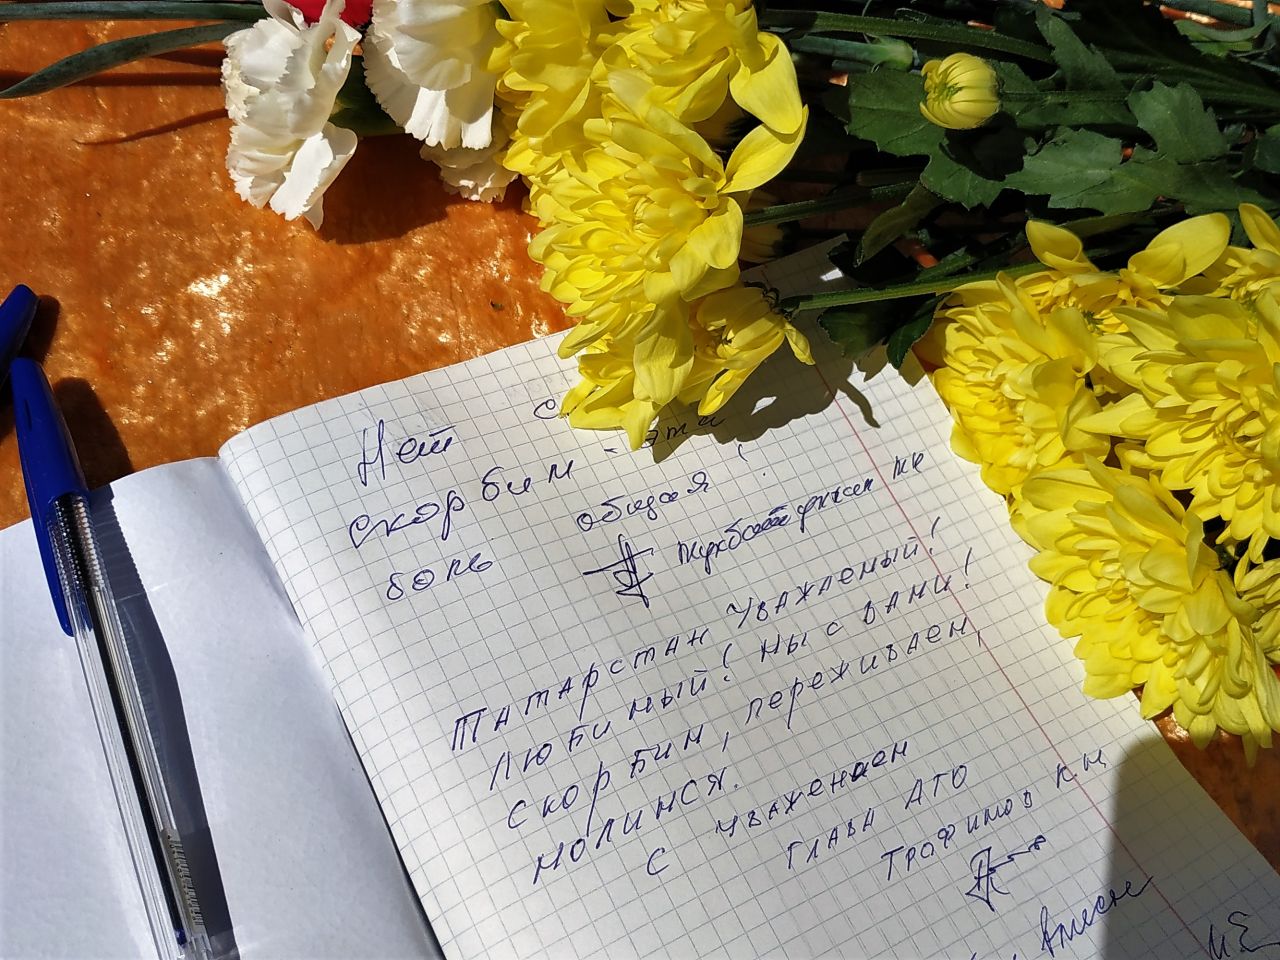 Нет
скорбим - эта
боль общая!
Татарстан уважаемый!
Любимый! Мы с вами!
Скорбим, переживаем,
молимся.
С уважением
Глава АТО
Трофимов К.М